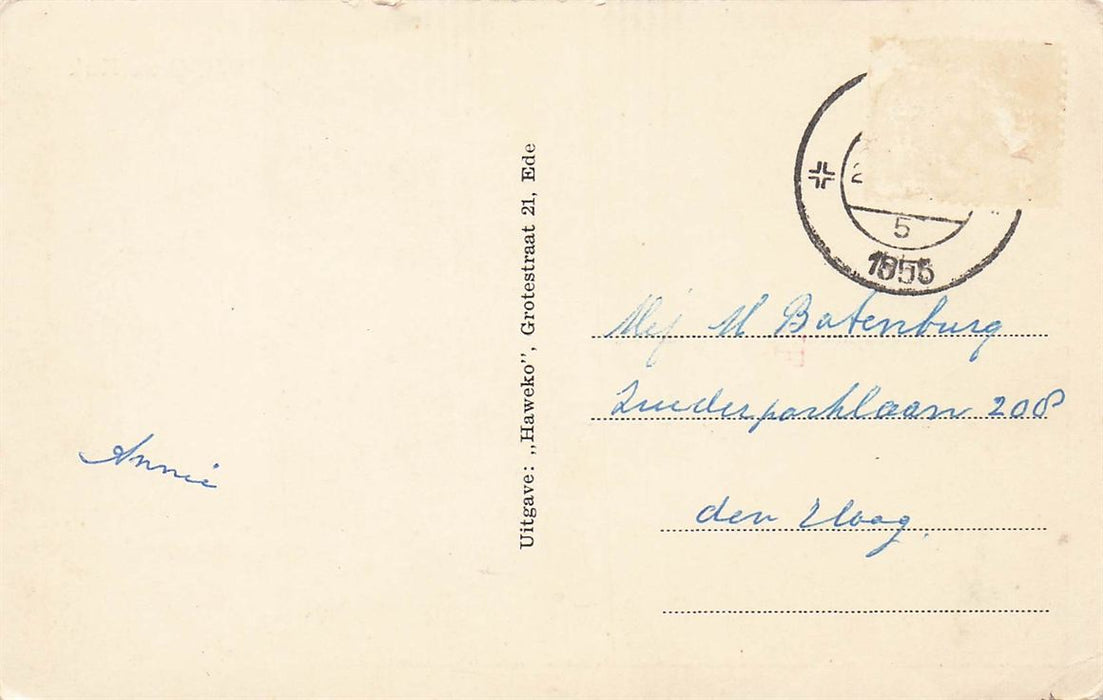 Annie
Uitgave: „Haweko”, Grotestraat 21, Ede
5
1955
Mej M Batenburg
Zuiderparklaan 208
den Haag.